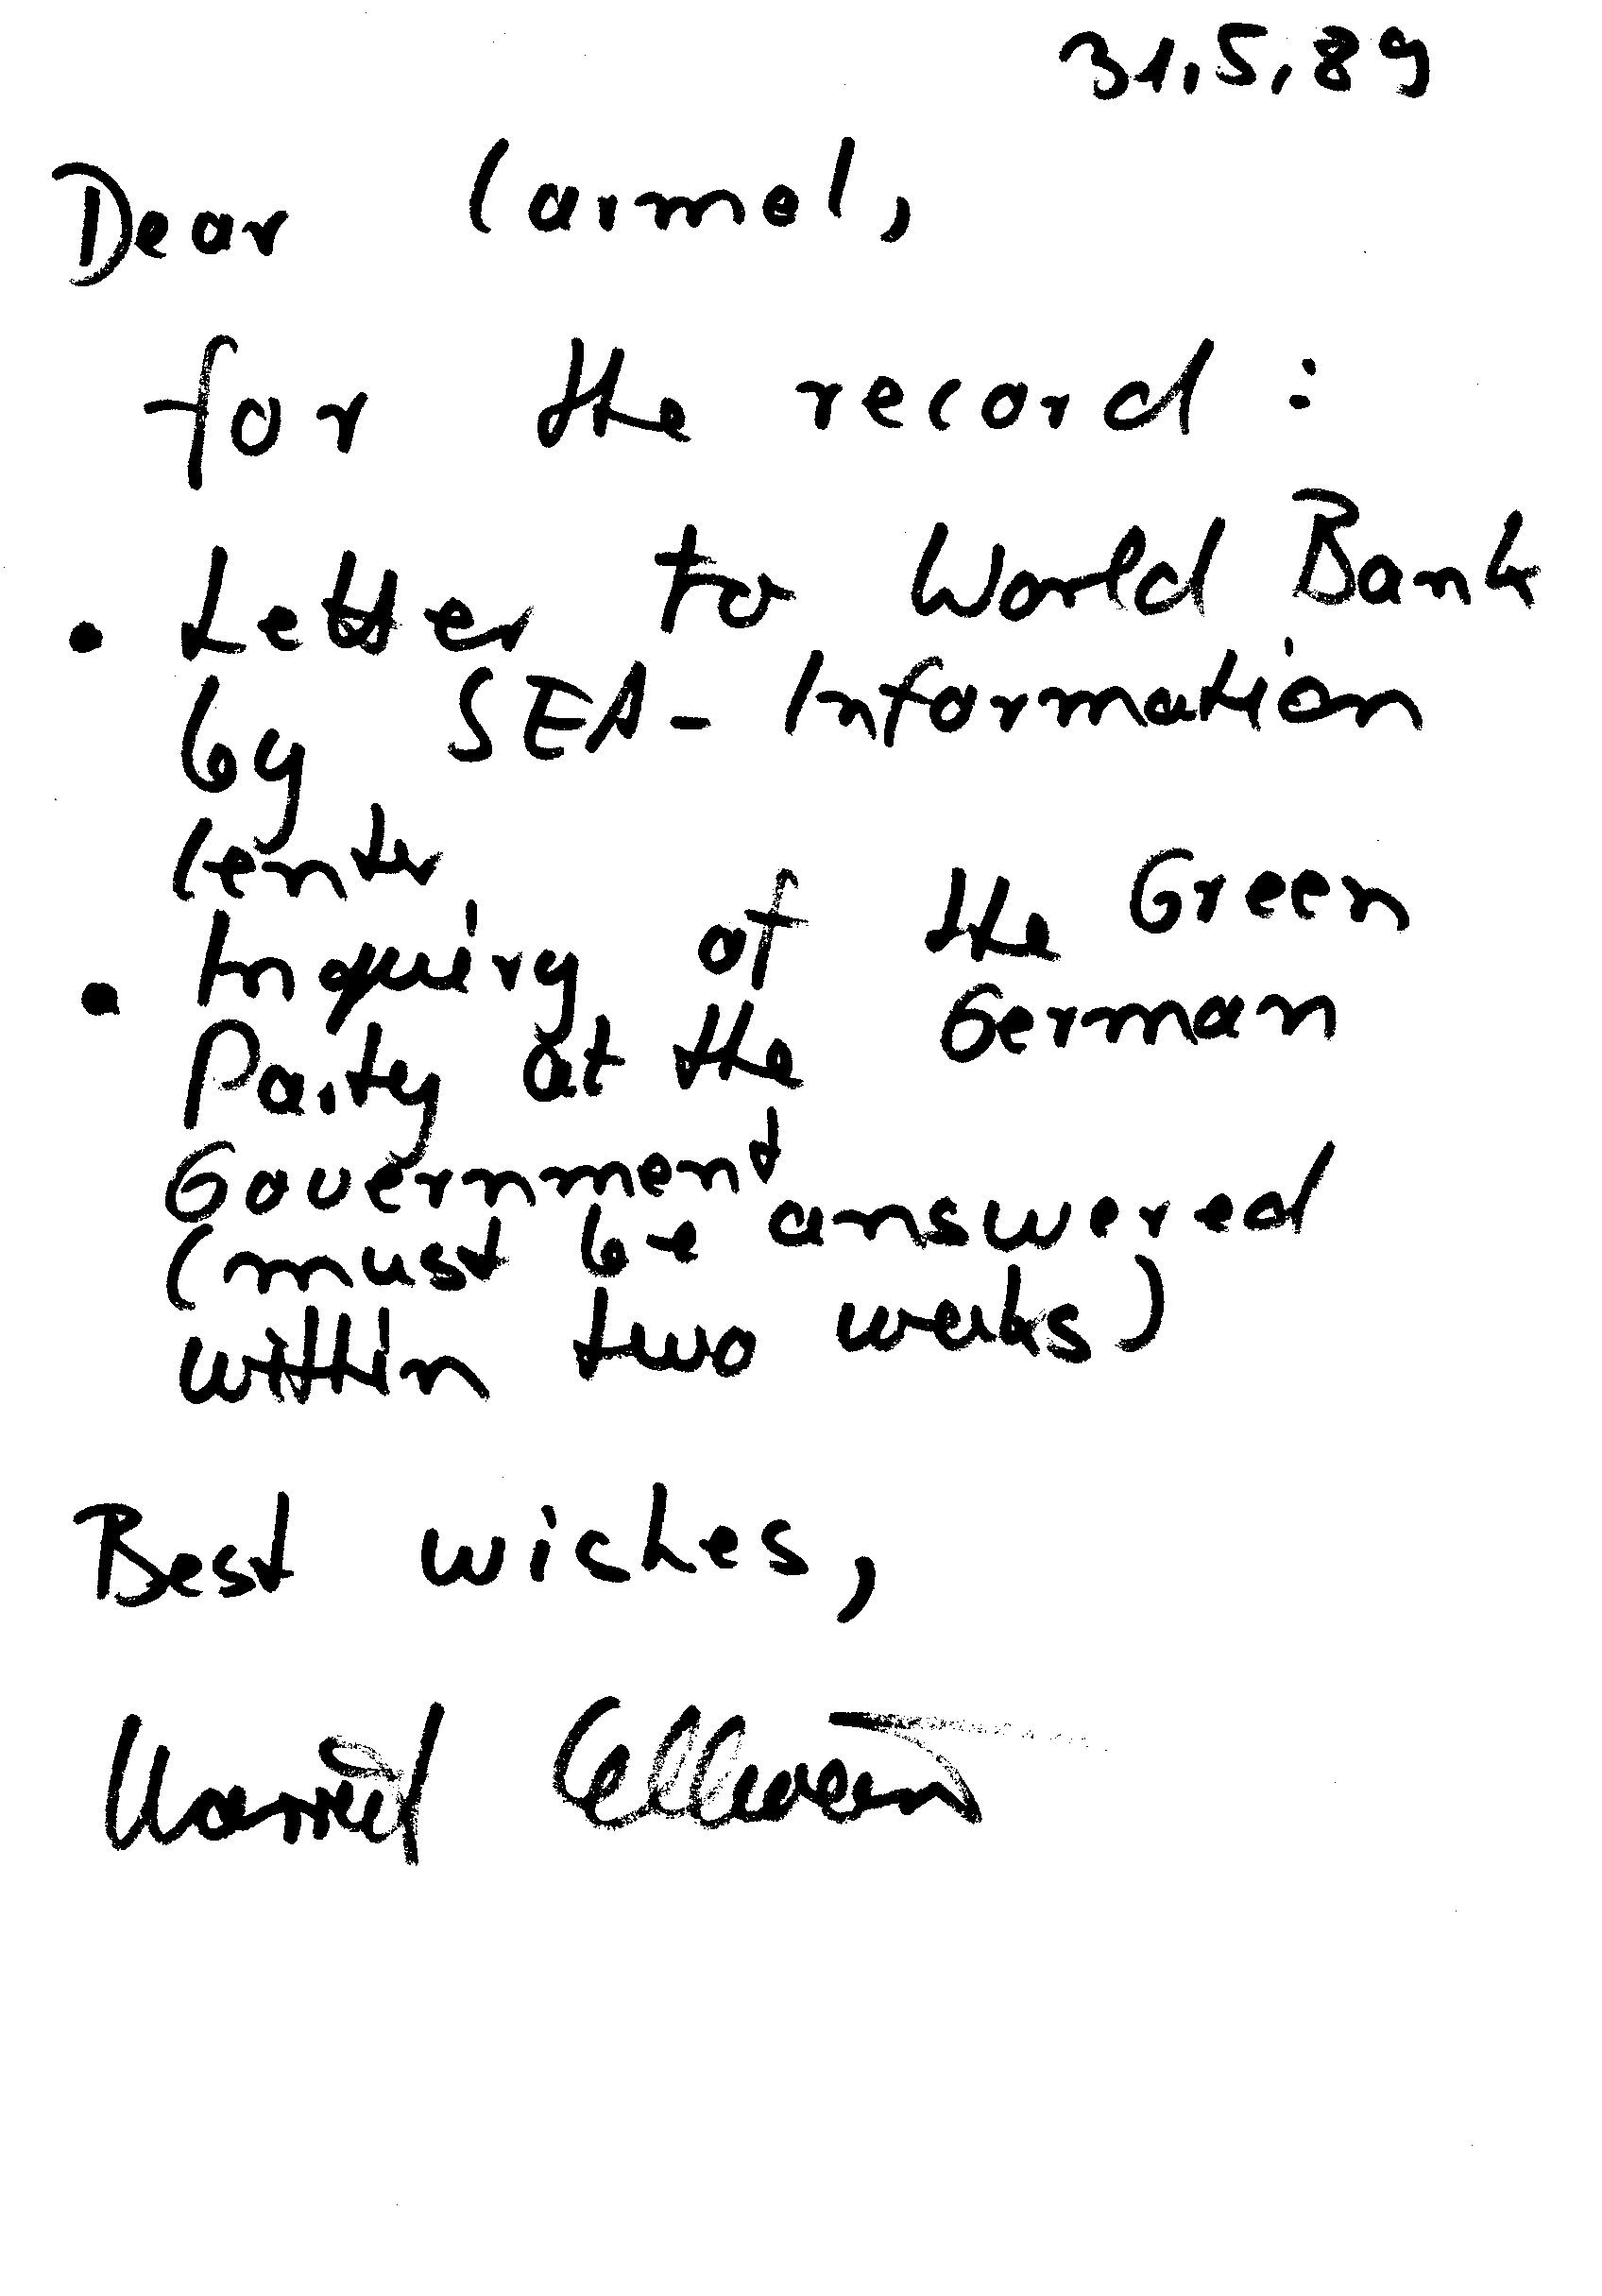 31.5.89
Dear Carmel,
for the record:
• Letter to World Bank
by SEA-Information
Center
• Inquiry of the Green
Party at the German
Government
(must be answered
within two weeks)
Best wishes,